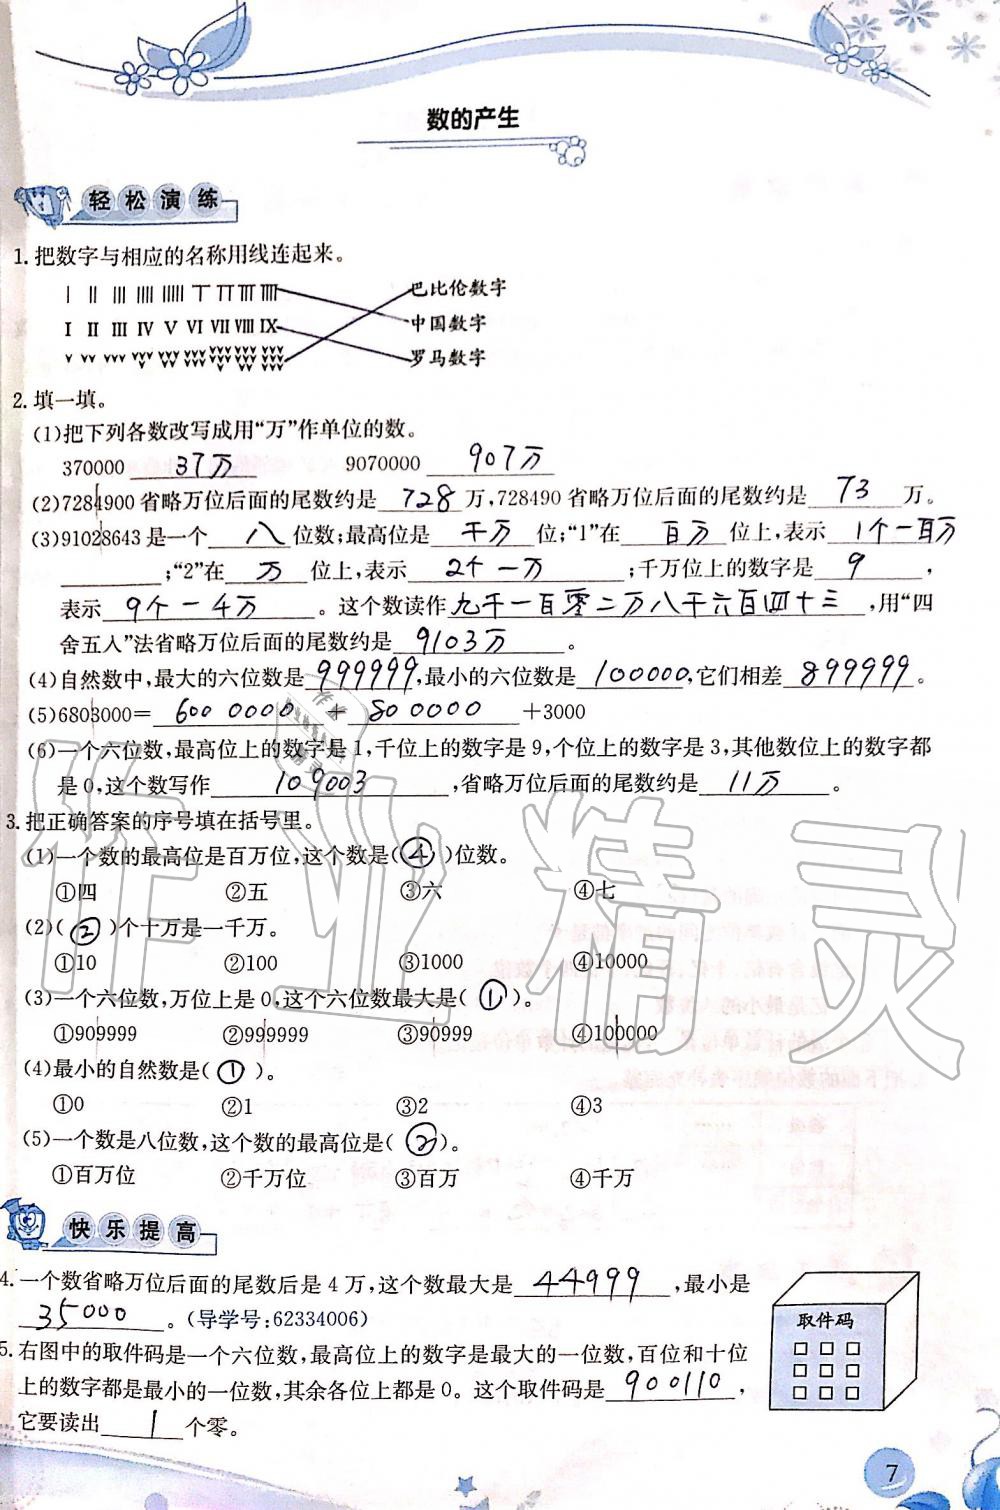 数的产生
轻松演练
1.把数字与相应的名称用线连起来。
巴比伦数字
I II III IV V VI VII VIII IX 中国数字
罗马数字
2.填一填。
(1)把下列各数改写成用“万”作单位的数。
370000 37万 9070000 907万
(2)7284900省略万位后面的尾数约是 728 万,728490省略万位后面的尾数约是 73 万。
(3)91028643是一个 八 位数;最高位是 千万 位;“1”在 百万 位上,表示 1个一百万
;“2”在 万 位上,表示 2个一万 ;千万位上的数字是 9 ,
表示 9个一千万 。这个数读作 九千一百零二万八千六百四十三 ,用“四
舍五入”法省略万位后面的尾数约是 9103万 。
(4)自然数中,最大的六位数是 999999 ,最小的六位数是 100000 ,它们相差 899999 。
(5)6803000= 6000000 + 800000 +3000
(6)一个六位数,最高位上的数字是1,千位上的数字是9,个位上的数字是3,其他数位上的数字都
是0,这个数写作 109003 ,省略万位后面的尾数约是 11万 。
3.把正确答案的序号填在括号里。
(1)一个数的最高位是百万位,这个数是( ④ )位数。
①四 ②五 ③六 ④七
(2)( ② )个十万是一千万。
①10 ②100 ③1000 ④10000
(3)一个六位数,万位上是0,这个六位数最大是( ① )。
①909999 ②999999 ③90999 ④100000
(4)最小的自然数是( ① )。
①0 ②1 ③2 ④3
(5)一个数是八位数,这个数的最高位是( ② )。
①百万位 ②千万位 ③百万 ④千万
快乐提高
4.一个数省略万位后面的尾数后是4万,这个数最大是 44999 ,最小是
35000 。(导学号:62334006)
取件码
5.右图中的取件码是一个六位数,最高位上的数字是最大的一位数,百位和十位
上的数字都是最小的一位数,其余各位上都是0。这个取件码是 900110 ,
它要读出 1 个零。
7
作业精灵